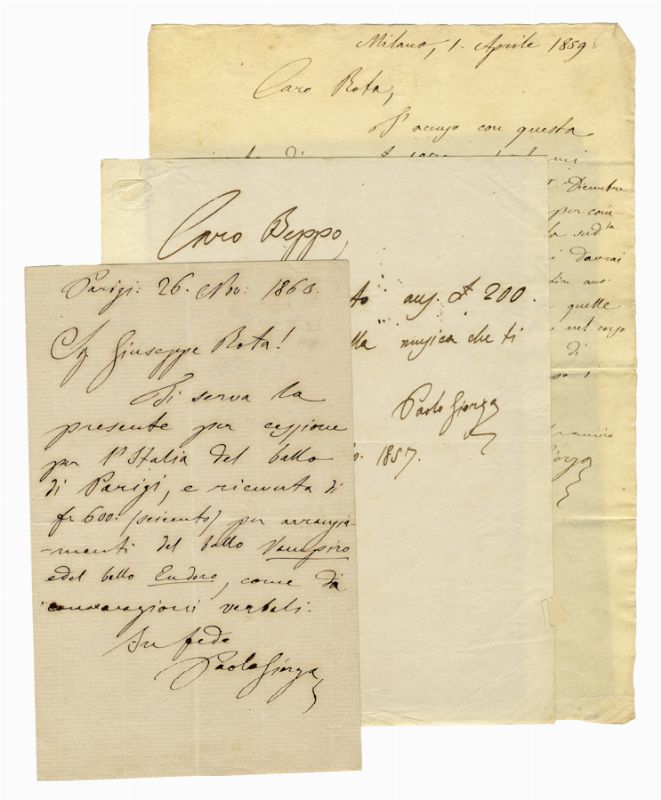 Milano, 1. Aprile 1859.
Caro Rota,
T'accuso con questa
Dicembre
per con-
sudta
dovrai
aus
quelle
nel corso
di
Caro Beppo,
to aus. £ 200.
lla musica che ti
Paolo Giorza
1857.
Parigi: 26. Nov: 1860.
Sig Giuseppe Rota!
Ti serva la
presente per cessione
per l'Italia del ballo
di Parigi, e ricevuta di
fr 600: (seicento) per arrangia-
-menti del ballo Vampiro
e del ballo Eudoro, come da
verbali.
In fede
Paolo Giorza